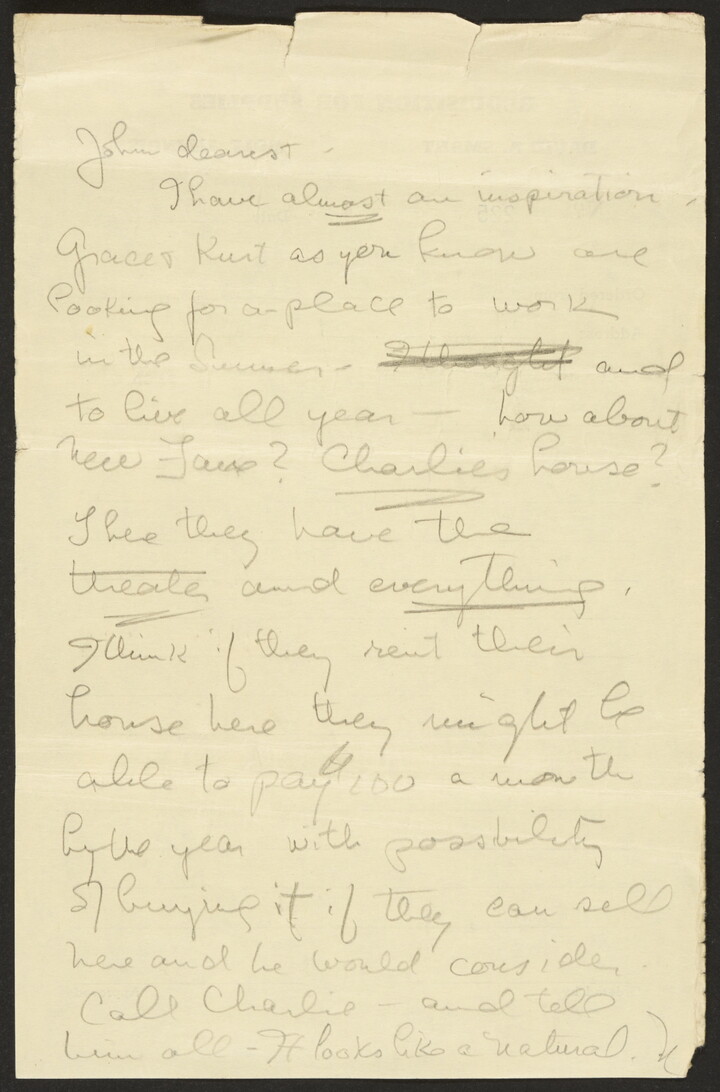 John dearest -
I have almost an inspiration.
Grace & Kurt as you know are
looking for a place to work
in the Summer - I thought and
to live all year — how about
New Jane? Charlies house?
they have the
theater and everything.
I think if they rent their
house here they might be
able to pay 100 a month
by the year with possibility
of buying it if they can sell
here and he would consider.
Call Charlie - and tell
him all - It looks like a natural.